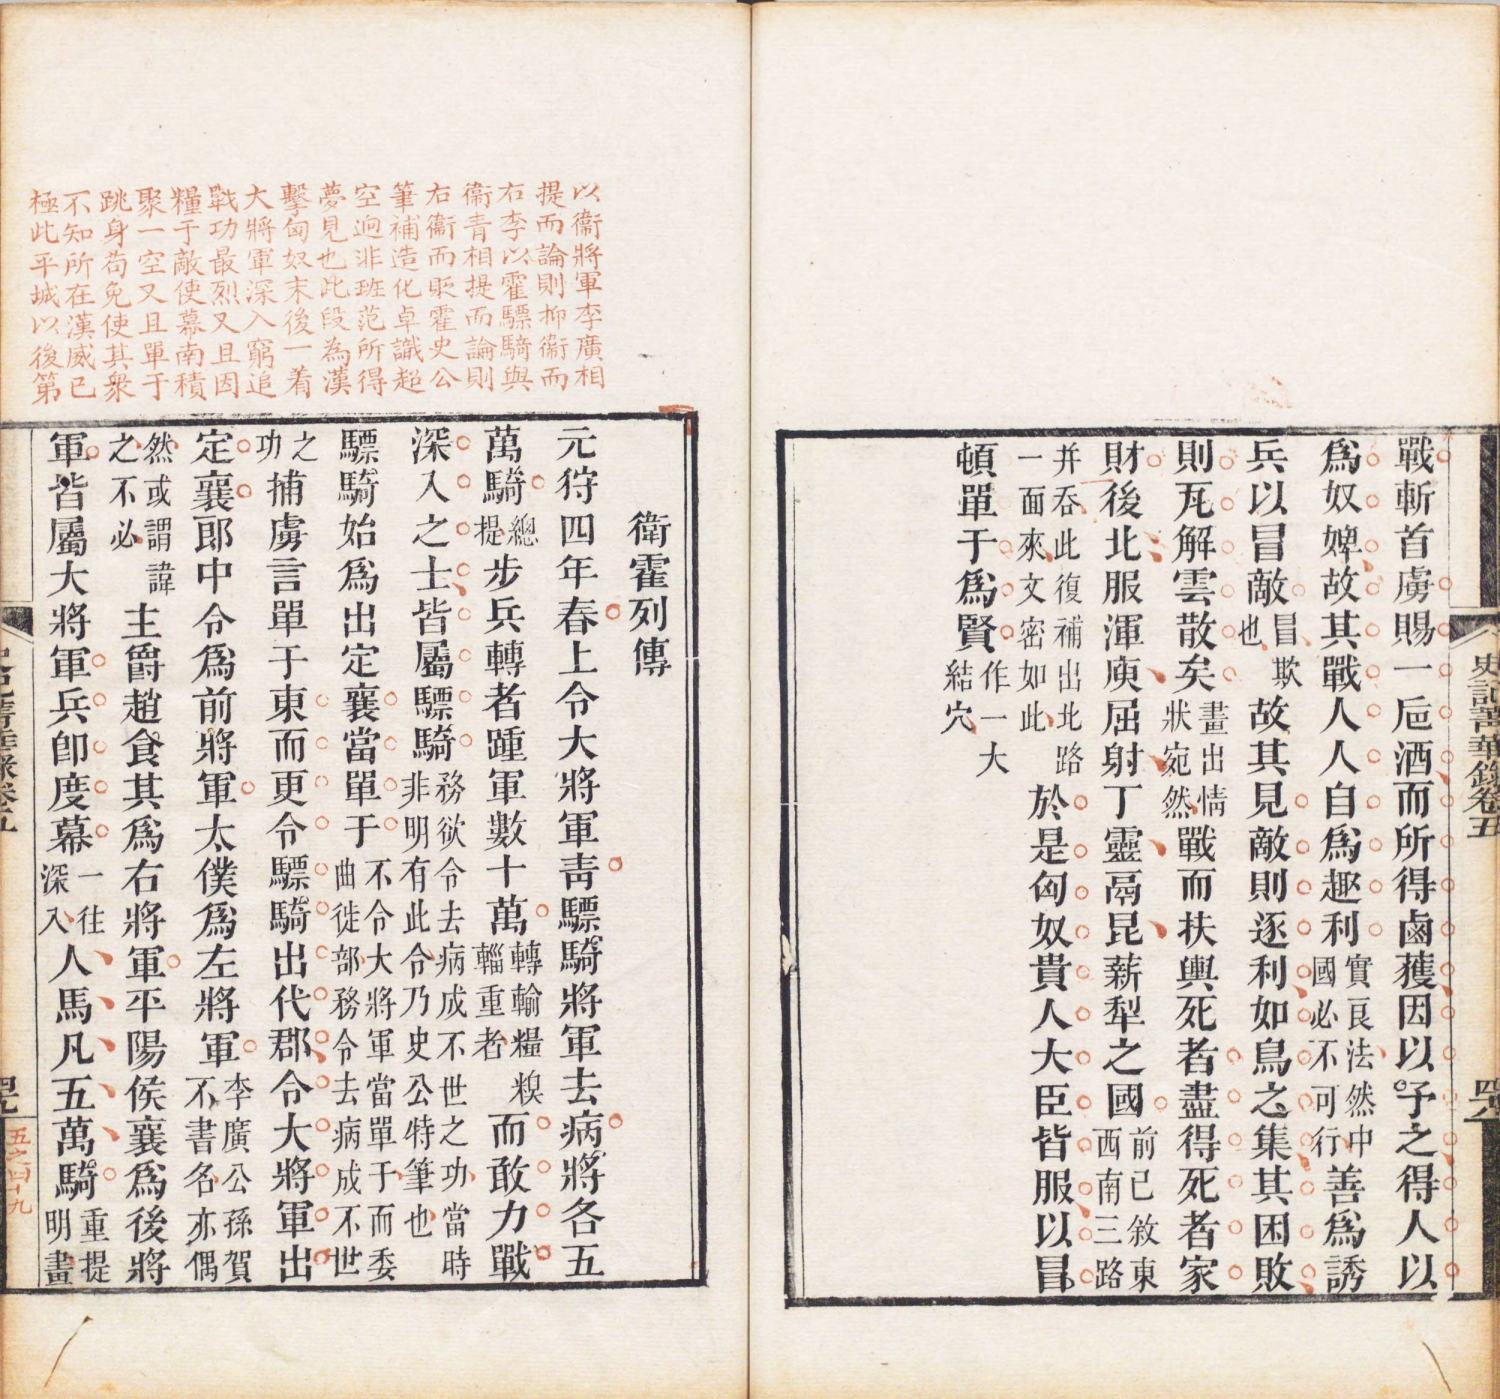 史記菁華錄卷五
四八
戰斬首虜賜一巵酒而所得鹵獲因以予之得人以
爲奴婢故其戰人人自爲趣利實良法然中國必不可行善爲誘
兵以冒敵冒欺也故其見敵則逐利如鳥之集其困敗
則瓦解雲散矣畫出情狀宛然戰而扶輿死者盡得死者家
財後北服渾庾屈射丁靈鬲昆薪犁之國前已敘東西南三路
并吞此復補出北路一面來文密如此於是匈奴貴人大臣皆服以冒
頓單于爲賢作一大結穴
以衞將軍李廣相
提而論則抑衞而
右李以霍驃騎與
衞青相提而論則
右衞而貶霍史公
筆補造化卓識超
空迥非班范所得
夢見也此段為漢
擊匈奴末後一着
大將軍深入窮追
戰功最烈又且因
糧于敵使幕南積
聚一空又且單于
跳身苟免使其衆
不知所在漢威已
極此平城以後第
衛霍列傳
元狩四年春上令大將軍青驃騎將軍去病將各五
萬騎總提步兵轉者踵軍數十萬轉輸糧糗輜重者而敢力戰
深入之士皆屬驃騎務欲令去病成不世之功當時非明有此令乃史公特筆也
驃騎始爲出定襄當單于不令大將軍當單于而委曲徙部務令去病成不世
之功捕虜言單于東而更令驃騎出代郡令大將軍出
定襄郎中令爲前將軍太僕爲左將軍李廣公孫賀不書名亦偶
然或謂諱之不必主爵趙食其爲右將軍平陽侯襄爲後將
軍皆屬大將軍兵卽度幕一往深入人馬凡五萬騎重提明畫
五之四十九